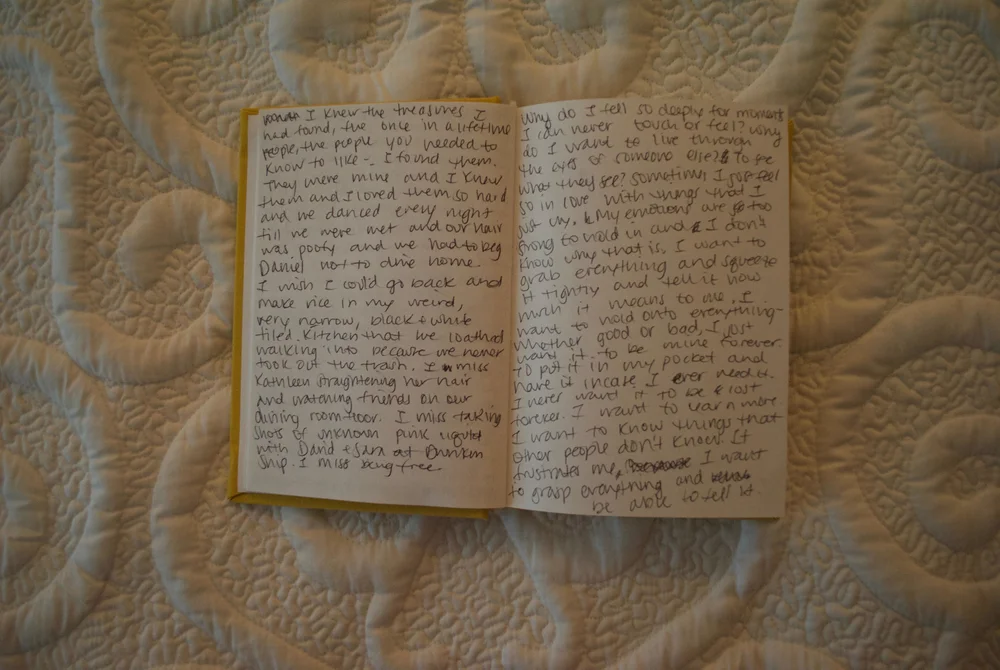 I knew the treasures I
had found, the once in a lifetime
people, the people you needed to
know to like - I found them.
They were mine and I knew
them and I loved them so hard
and we danced every night
till we were wet and our hair
was poofy and we had to beg
Daniel not to drive home.
I wish I could go back and
make rice in my weird,
very narrow, black & white
tiled kitchen that we loathed
walking into because we never
took out the trash. I miss
Kathleen straightening her hair
and watching friends on our
dining room floor. I miss taking
shots of unknown pink liquid
with David & Sara at Drunken
Ship. I miss being free
Why do I fell so deeply for moments
I can never touch or feel? Why
do I want to live through
the eyes of someone else? to see
what they see? Sometimes I just feel
so in love with things that I
just cry. My emotions are too
strong to hold in and I don't
know why that is. I want to
grab everything and squeeze
it tightly and tell it how
much it means to me. I
want to hold onto everything -
whether good or bad, I just
want it to be mine forever.
To put it in my pocket and
have it incase I ever need it.
I never want it to be lost
forever. I want to learn more
I want to know things that
other people don't know. It
frustrates me, I want
to grasp everything and
be able to tell it.